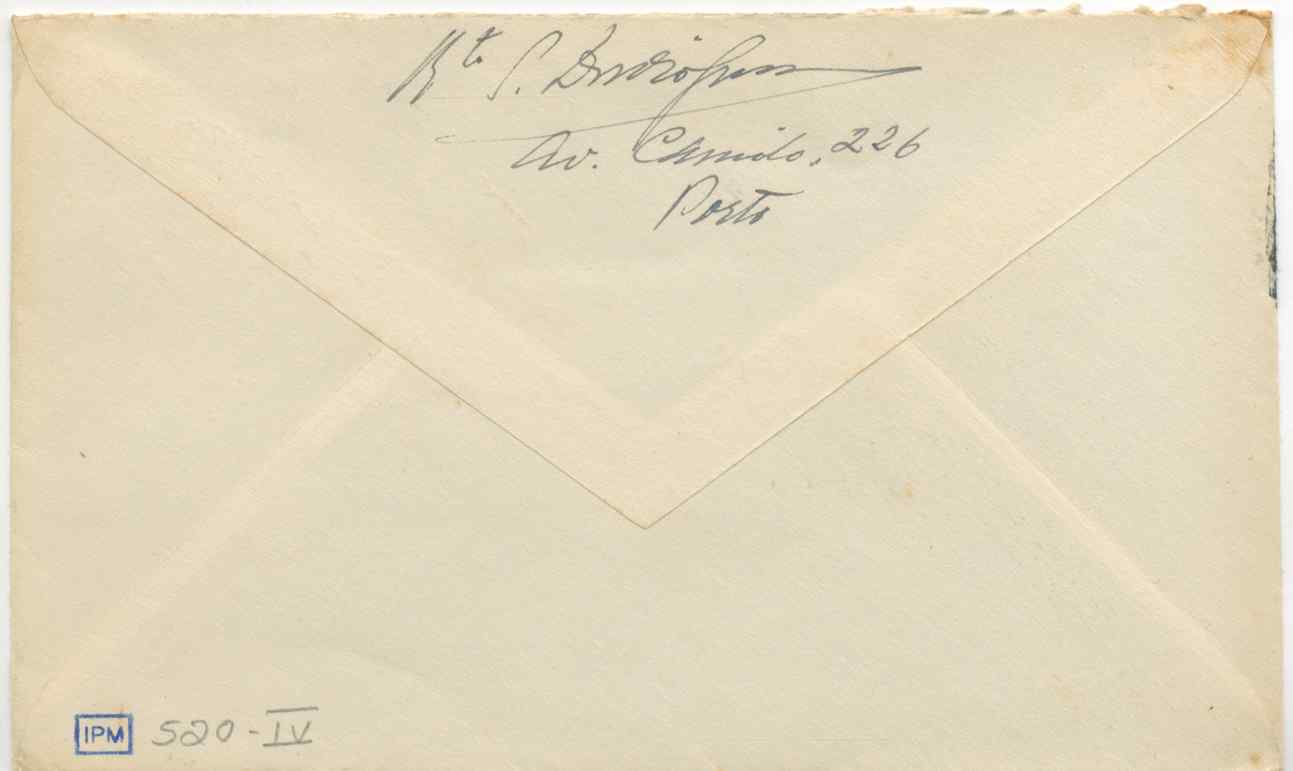 Rte S.
Av. Camilo, 226
Porto
IPM 520-IV